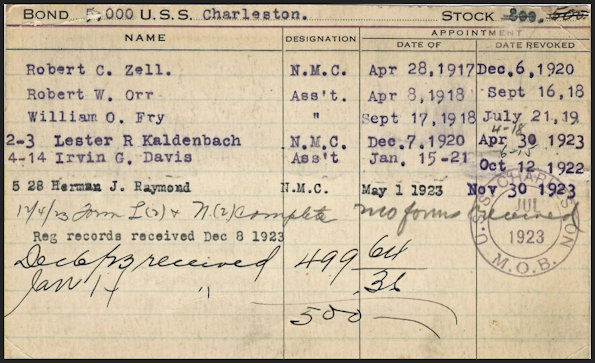 BOND 5,000 U.S.S. Charleston. STOCK 500.
NAME DESIGNATION APPOINTMENT
DATE OF DATE REVOKED
Robert C. Zell. N.M.C. Apr 28,1917 Dec.6,1920
Robert W. Orr Ass't. Apr 8,1918 Sept 16,18
William O. Fry " Sept 17,1918 July 21,19
4-18
2-3 Lester R Kaldenbach N.M.C. Dec.7,1920 Apr 30 1923
6-15
4-14 Irvin G. Davis Ass't Jan. 15-21 Oct 12 1922
5 28 Herman J. Raymond N.M.C. May 1 1923 Nov 30 1923
12/4/23 Form L(2) & N(2) Complete no forms received
Reg records received Dec 8 1923
Dec 6/23 received 499 64
Jan 14 " 36
500
U.S.S. CHARLESTON
JUL
1923
M.O.B.